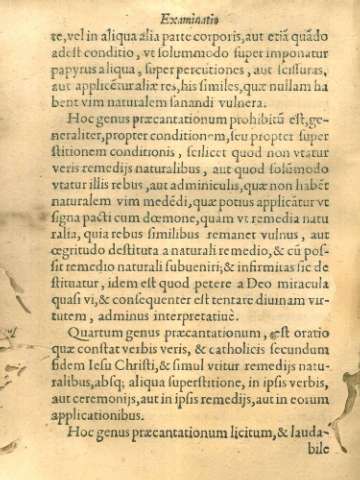 Examinatio
te, vel in aliqua alia parte corporis, aut etiā quādo
adest conditio, vt solummodo super imponatur
papyrus aliqua, super percutiones, aut scissuras,
aut applicētur aliæ res, his similes, quæ nullam ha
bent vim naturalem sanandi vulnera.
Hoc genus præcantationum prohibitū est, ge-
neraliter, propter conditionem, seu propter super
stitionem conditionis, scilicet quod non vtatur
veris remedijs naturalibus, aut quod solūmodo
vtatur illis rebus, aut adminiculis, quæ non habēt
naturalem vim medēdi, quæ potius applicātur vt
signa pacti cum dœmone, quàm vt remedia natu
ralia, quia rebus similibus remanet vulnus, aut
œgritudo destituta a naturali remedio, & cū pos-
sit remedio naturali subueniri; & infirmitas sic de
stituatur, idem est quod petere a Deo miracula
quasi vi, & consequenter est tentare diuinam vir-
tutem, adminus interpretatiuè.
Quartum genus præcantationum, est oratio
quæ constat verbis veris, & catholicis secundum
fidem Iesu Christi, & simul vtitur remedijs natu-
ralibus, absq; aliqua superstitione, in ipsis verbis,
aut ceremonijs, aut in ipsis remedijs, aut in eorum
applicationibus.
Hoc genus præcantationum licitum, & lauda-
bile